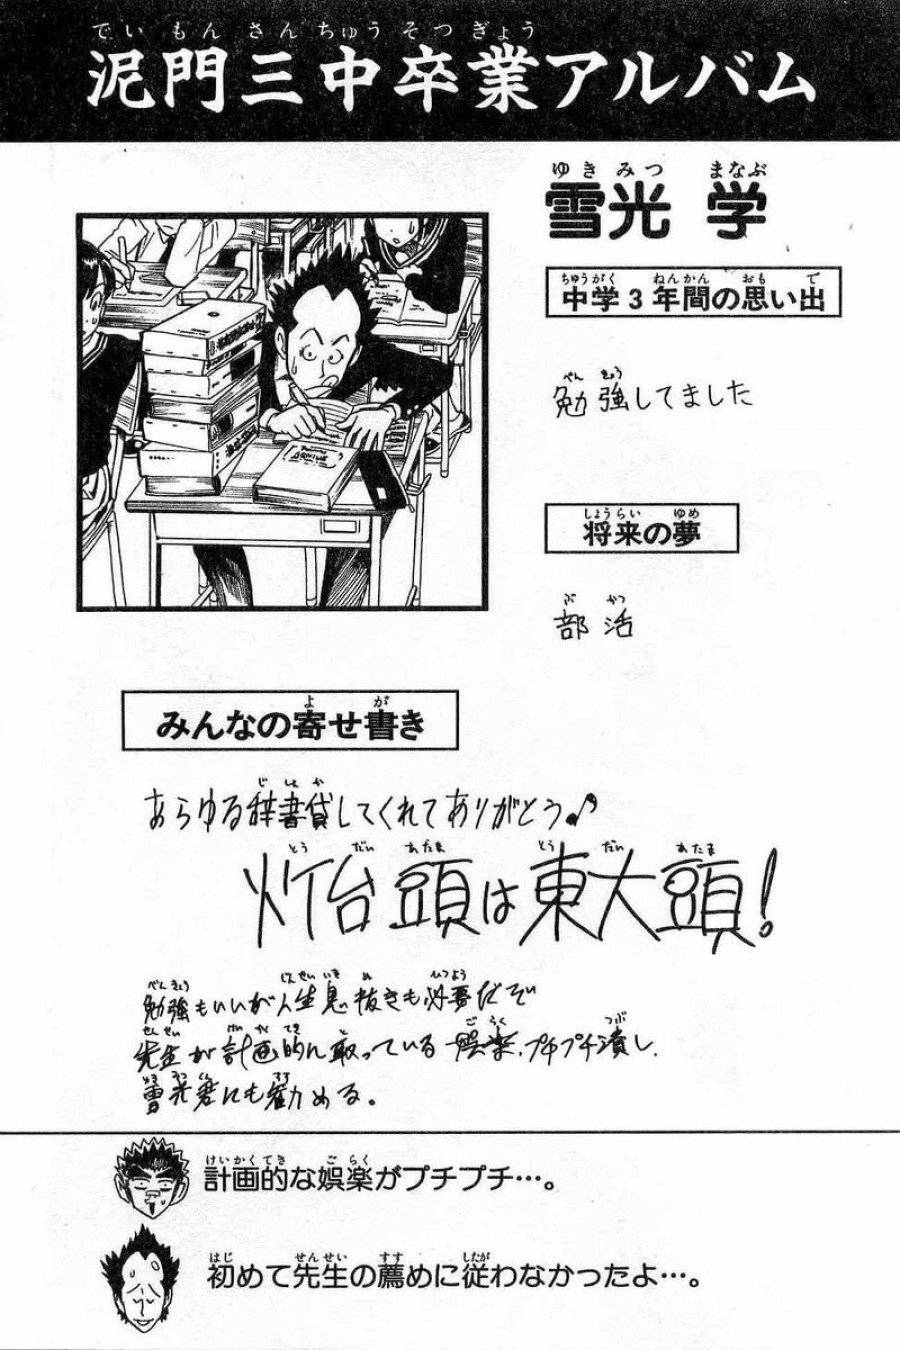 でいもんさんちゅうそつぎょう
泥門三中卒業アルバム
ゆきみつ まなぶ
雪光 学
ちゅうがく ねんかん おも で
中学3年間の思い出
べんきょう
勉強してました
しょうらい ゆめ
将来の夢
ぶかつ
部活
よ が
みんなの寄せ書き
じしょ か
あらゆる辞書貸してくれてありがとう♪
とうだいあたま とうだいあたま
灯台頭は東大頭!
べんきょう じんせいいき ぬ ひつよう
勉強もいいが人生息抜きも必要だぞ
せんせい けいかくてき と ごらく つぶ
先生が計画的に取っている娯楽、プチプチ潰し、
ゆきみつくん すす
雪光君にも勧める。
けいかくてき ごらく
計画的な娯楽がプチプチ…。
はじ せんせい すす したが
初めて先生の薦めに従わなかったよ…。